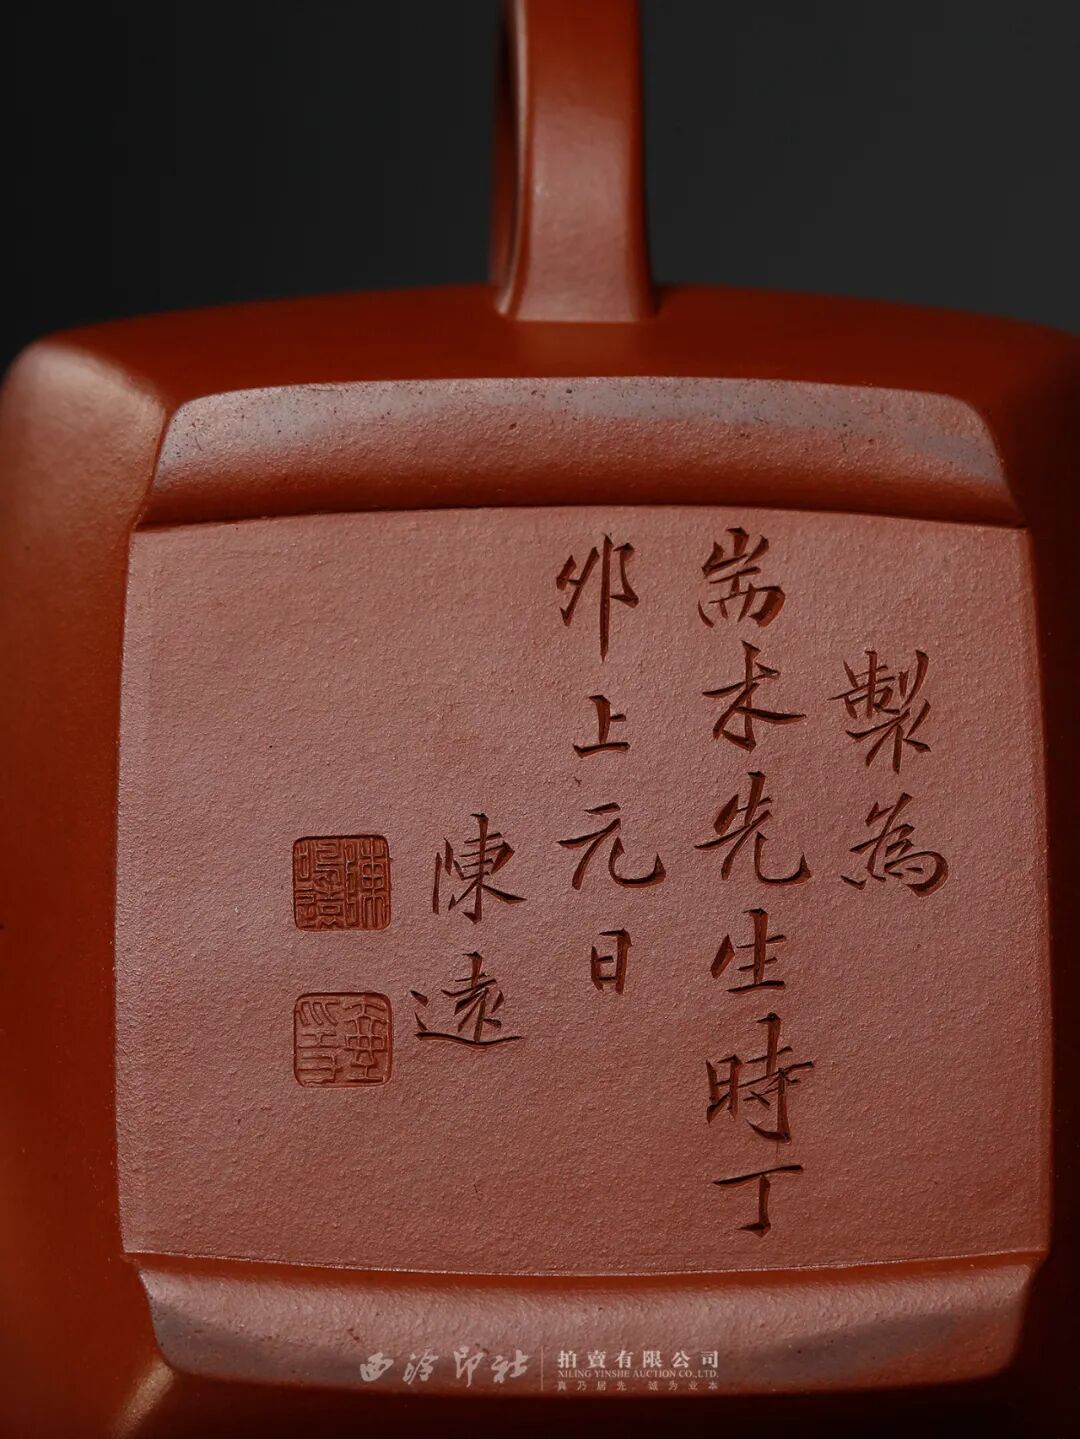 製為
耑木先生時丁
丱上元日
陳遠
陳鳴遠
西泠印社
拍賣有限公司
XILING YINSHE AUCTION CO.,LTD.
真乃居先 誠為业本